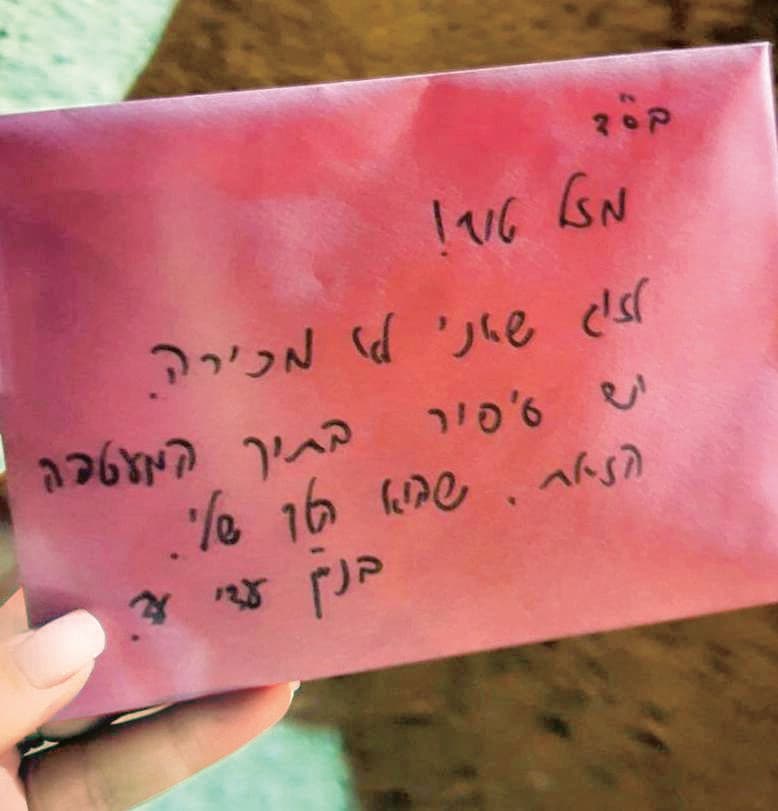 בס"ד
מזל טוב!
לזוג שאני לא מכירה.
יש סיפור בתוך המעטפה
הזאת. שהוא שלי.
בניין עדי עד.